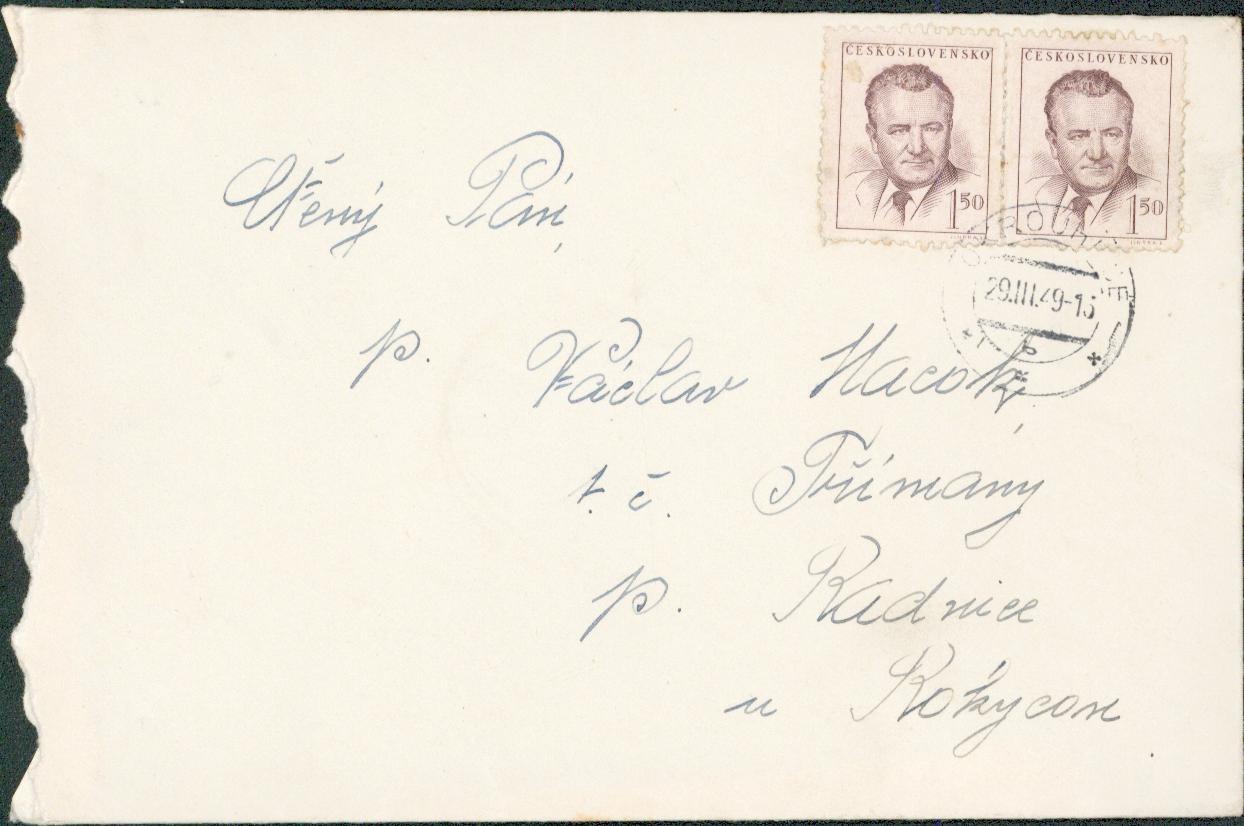 ČESKOSLOVENSKO
1 50
ČESKOSLOVENSKO
1 50
29.III.49-15
Ctěný Pán
p. Václav Hacok
t. č. Třímany
p. Radnice
u Rokycan